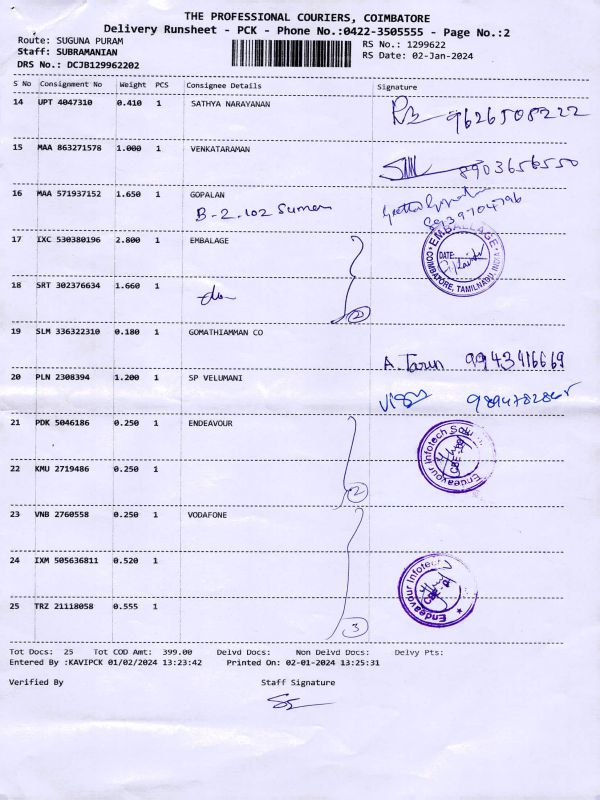 THE PROFESSIONAL COURIERS, COIMBATORE
Delivery Runsheet - PCK - Phone No.:0422-3505555 - Page No.:2
Route: SUGUNA PURAM
Staff: SUBRAMANIAN
DRS No.: DCJB129962202
RS No.: 1299622
RS Date: 02-Jan-2024
S No Consignment No Weight PCS Consignee Details Signature
14 UPT 4047310 0.410 1 SATHYA NARAYANAN 9626508222
15 MAA 863271578 1.000 1 VENKATARAMAN 8903656550
16 MAA 571937152 1.650 1 GOPALAN
B-2.102 Sumeru
8939704796
17 IXC 530380196 2.800 1 EMBALAGE
EMBALLAGE
DATE:
COIMBATORE, TAMILNADU, INDIA
18 SRT 302376634 1.660 1 do 2
19 SLM 336322310 0.180 1 GOMATHIAMMAN CO A. Tarun 9943416669
20 PLN 2308394 1.200 1 SP VELUMANI
21 PDK 5046186 0.250 1 ENDEAVOUR
Endeavour Infotech
22 KMU 2719486 0.250 1 2
23 VNB 2760558 0.250 1 VODAFONE
24 IXM 505636811 0.520 1
Endeavour Infotech
25 TRZ 21118058 0.555 1 3
Tot Docs: 25 Tot COD Amt: 399.00 Delvd Docs: Non Delvd Docs: Delvy Pts:
Entered By :KAVIPCK 01/02/2024 13:23:42 Printed On: 02-01-2024 13:25:31
Verified By Staff Signature